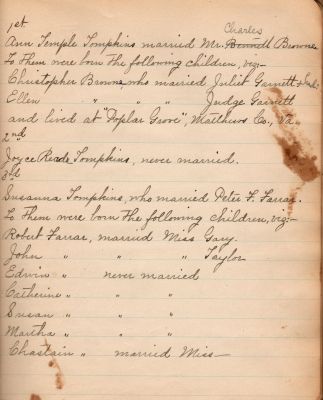 1st
Charles
Ann Temple Tompkins married Mr. Bennett Browne
To them were born the following children, viz:-
Christopher Browne, who married Juliet Garnett
Ellen " " " Judge Garnett
and lived at "Poplar Grove", Matthews Co., Va.
2nd
Joyce Reade Tompkins, never married.
3d
Susanna Tompkins, who married Peter F. Farrar.
To them were born the following children, viz:-
Robert Farrar, married Miss Gary.
John " " " Taylor
Edwin " never married
Catherine " " "
Susan " " "
Martha " " "
Chastain " married Miss —